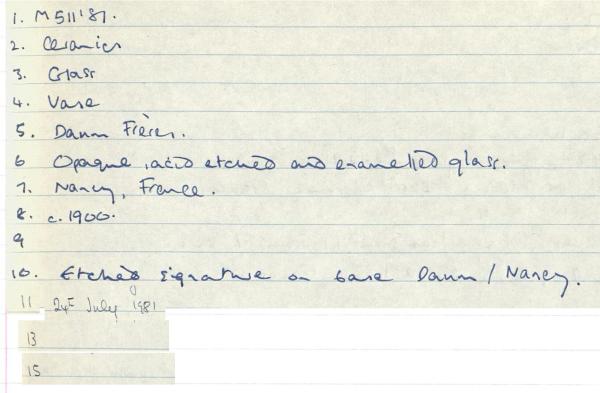 1. M511'81.
2. Ceramics
3. Glass
4. Vase
5. Daum Frères.
6 Opaque, acid etched and enamelled glass.
7. Nancy, France.
8. c.1900.
9
10. Etched signature on base Daum / Nancy.
11 24th July 1981
13
15